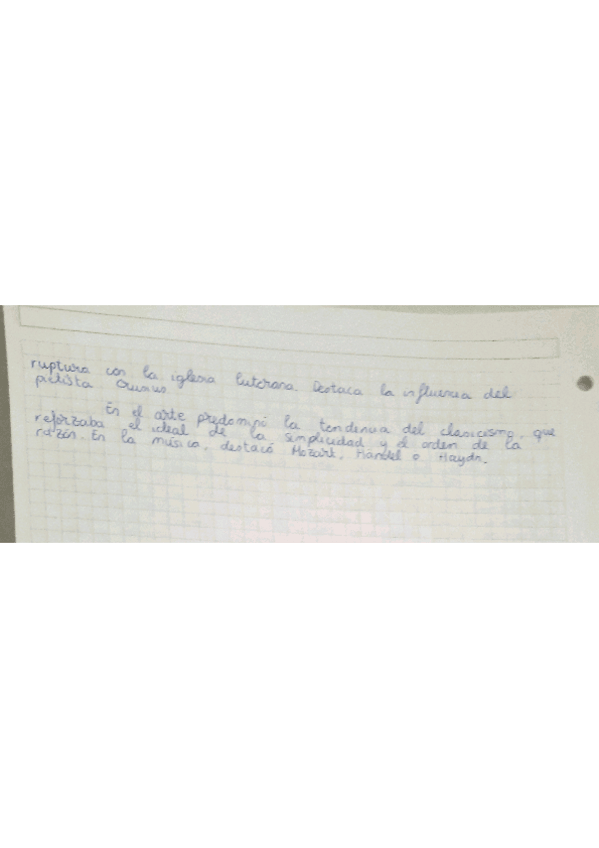 ruptura con la iglesia luterana. Destaca la influencia del
pietista
En el arte predominó la tendencia del clasicismo, que
reforzaba el ideal de la simplicidad y el orden de la
razón. En la música, destacó Mozart, Händel o Haydn.